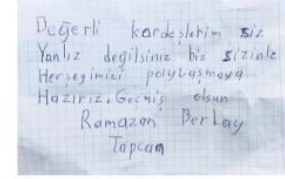 Değerli kardeşlerim siz
Yanlız değilsiniz biz sizinle
Herşeyimizi paylaşmaya
Hazırız. Geçmiş olsun
Ramazan Berkay
Tapcan